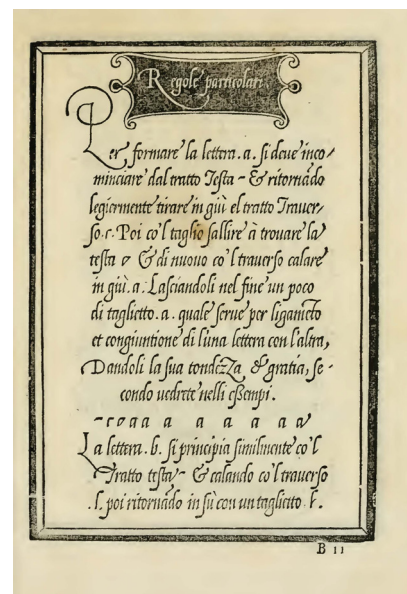 Regole particolari.
Per formare la lettera .a. si deue inco-
minciare dal tratto Testa - & ritornãdo
legiermente tirare in giù el tratto Trauer-
so .c. Poi co'l taglio sallire à trouare la
testa & di nuouo co'l trauerso calare
in giù .a. Lasciandoli nel fine un poco
di taglietto .a. quale serue per ligamẽto
et congiuntione di l'una lettera con l'altra,
Dandoli la sua tondezza & gratia, se-
condo uedrete nelli essempi.
- r o a a a a a a a
La lettera .b. si principia similmente co'l
Tratto testa - & calando co'l trauerso
.l. poi ritornãdo in sù con un taglietto
B II